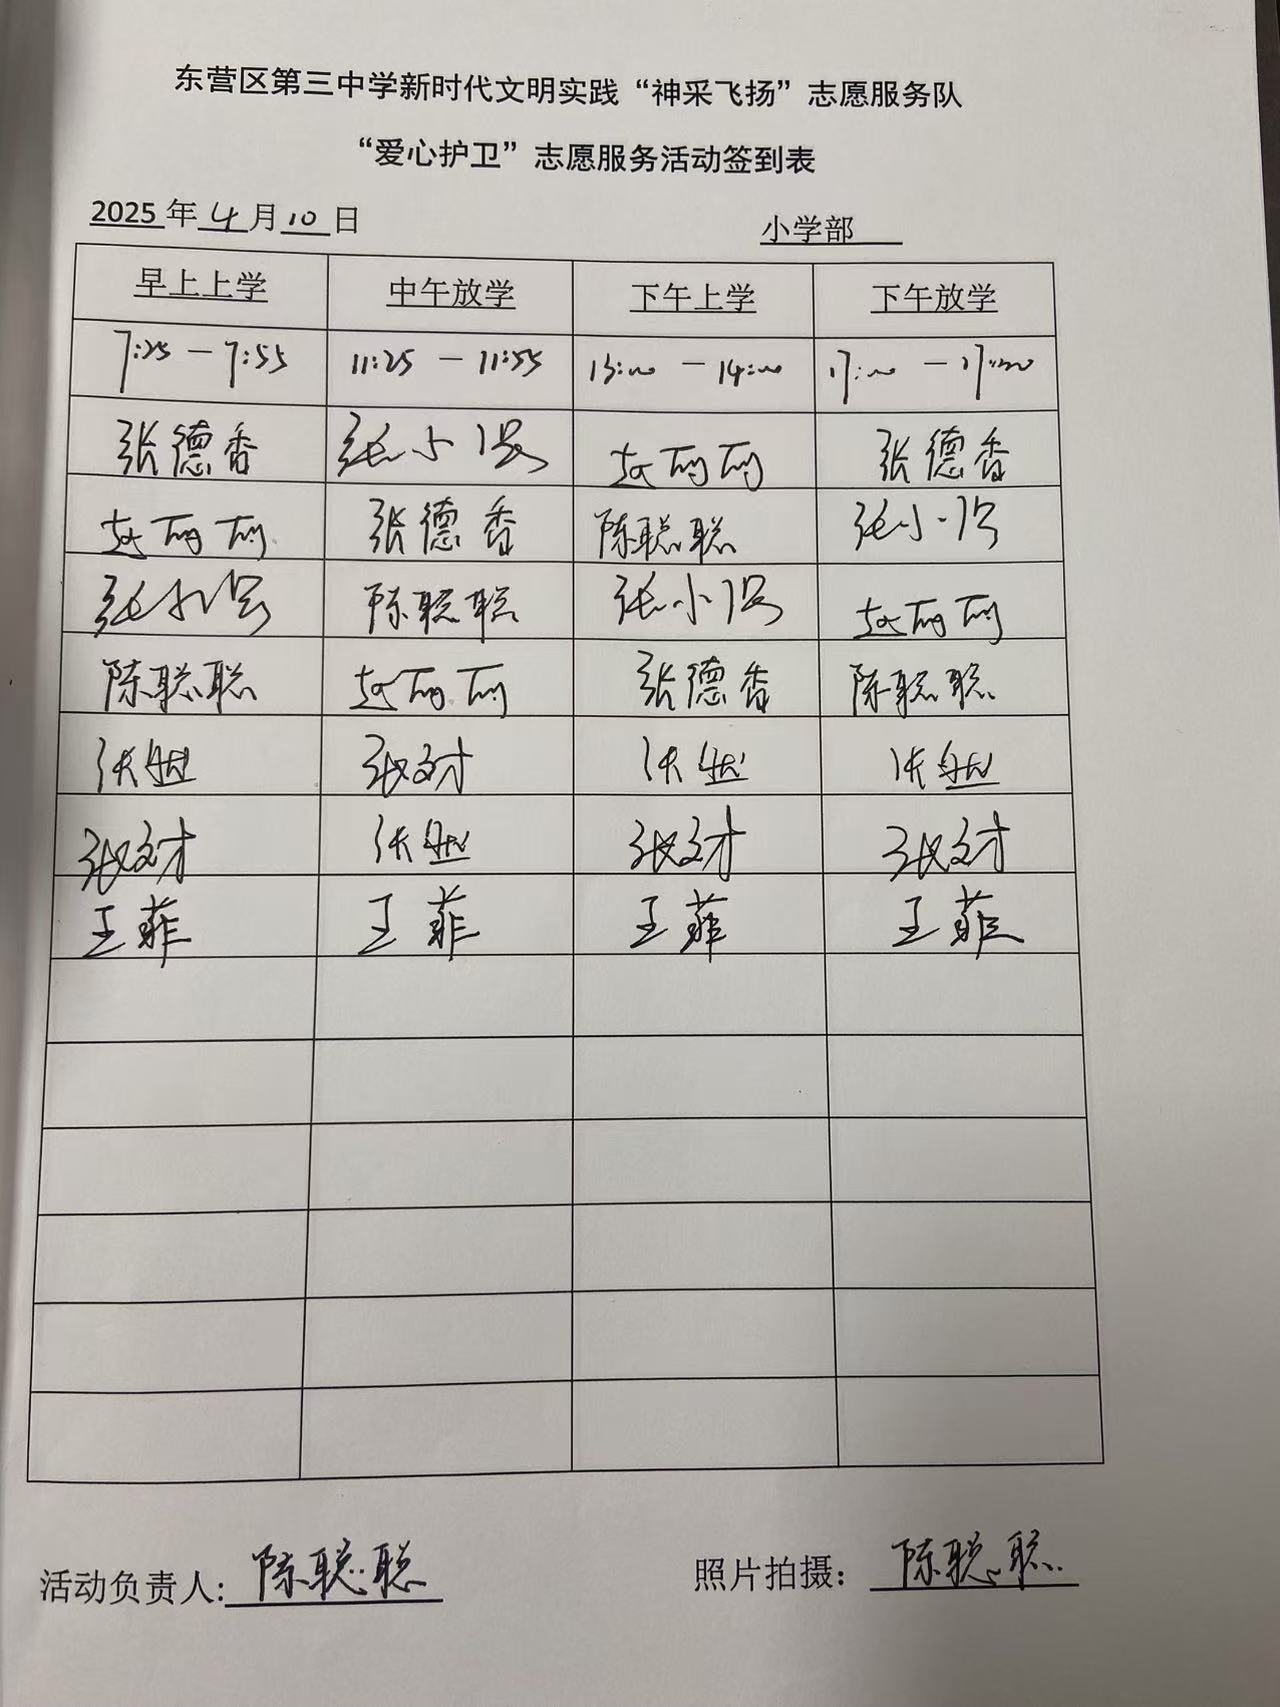 东营区第三中学新时代文明实践“神采飞扬”志愿服务队
“爱心护卫”志愿服务活动签到表
2025年4月10日 小学部
早上上学 中午放学 下午上学 下午放学
7:25—7:55 11:25—11:55 13:00—14:00 17:00—17:30
张德香 张小 赵丽丽 张德香
赵丽丽 张德香 陈聪聪 张小
张小 陈聪聪 张小 赵丽丽
陈聪聪 赵丽丽 张德香 陈聪聪
张 张文才 张 张
张文才 张 张文才 张文才
王菲 王菲 王菲 王菲
活动负责人:陈聪聪 照片拍摄：陈聪聪